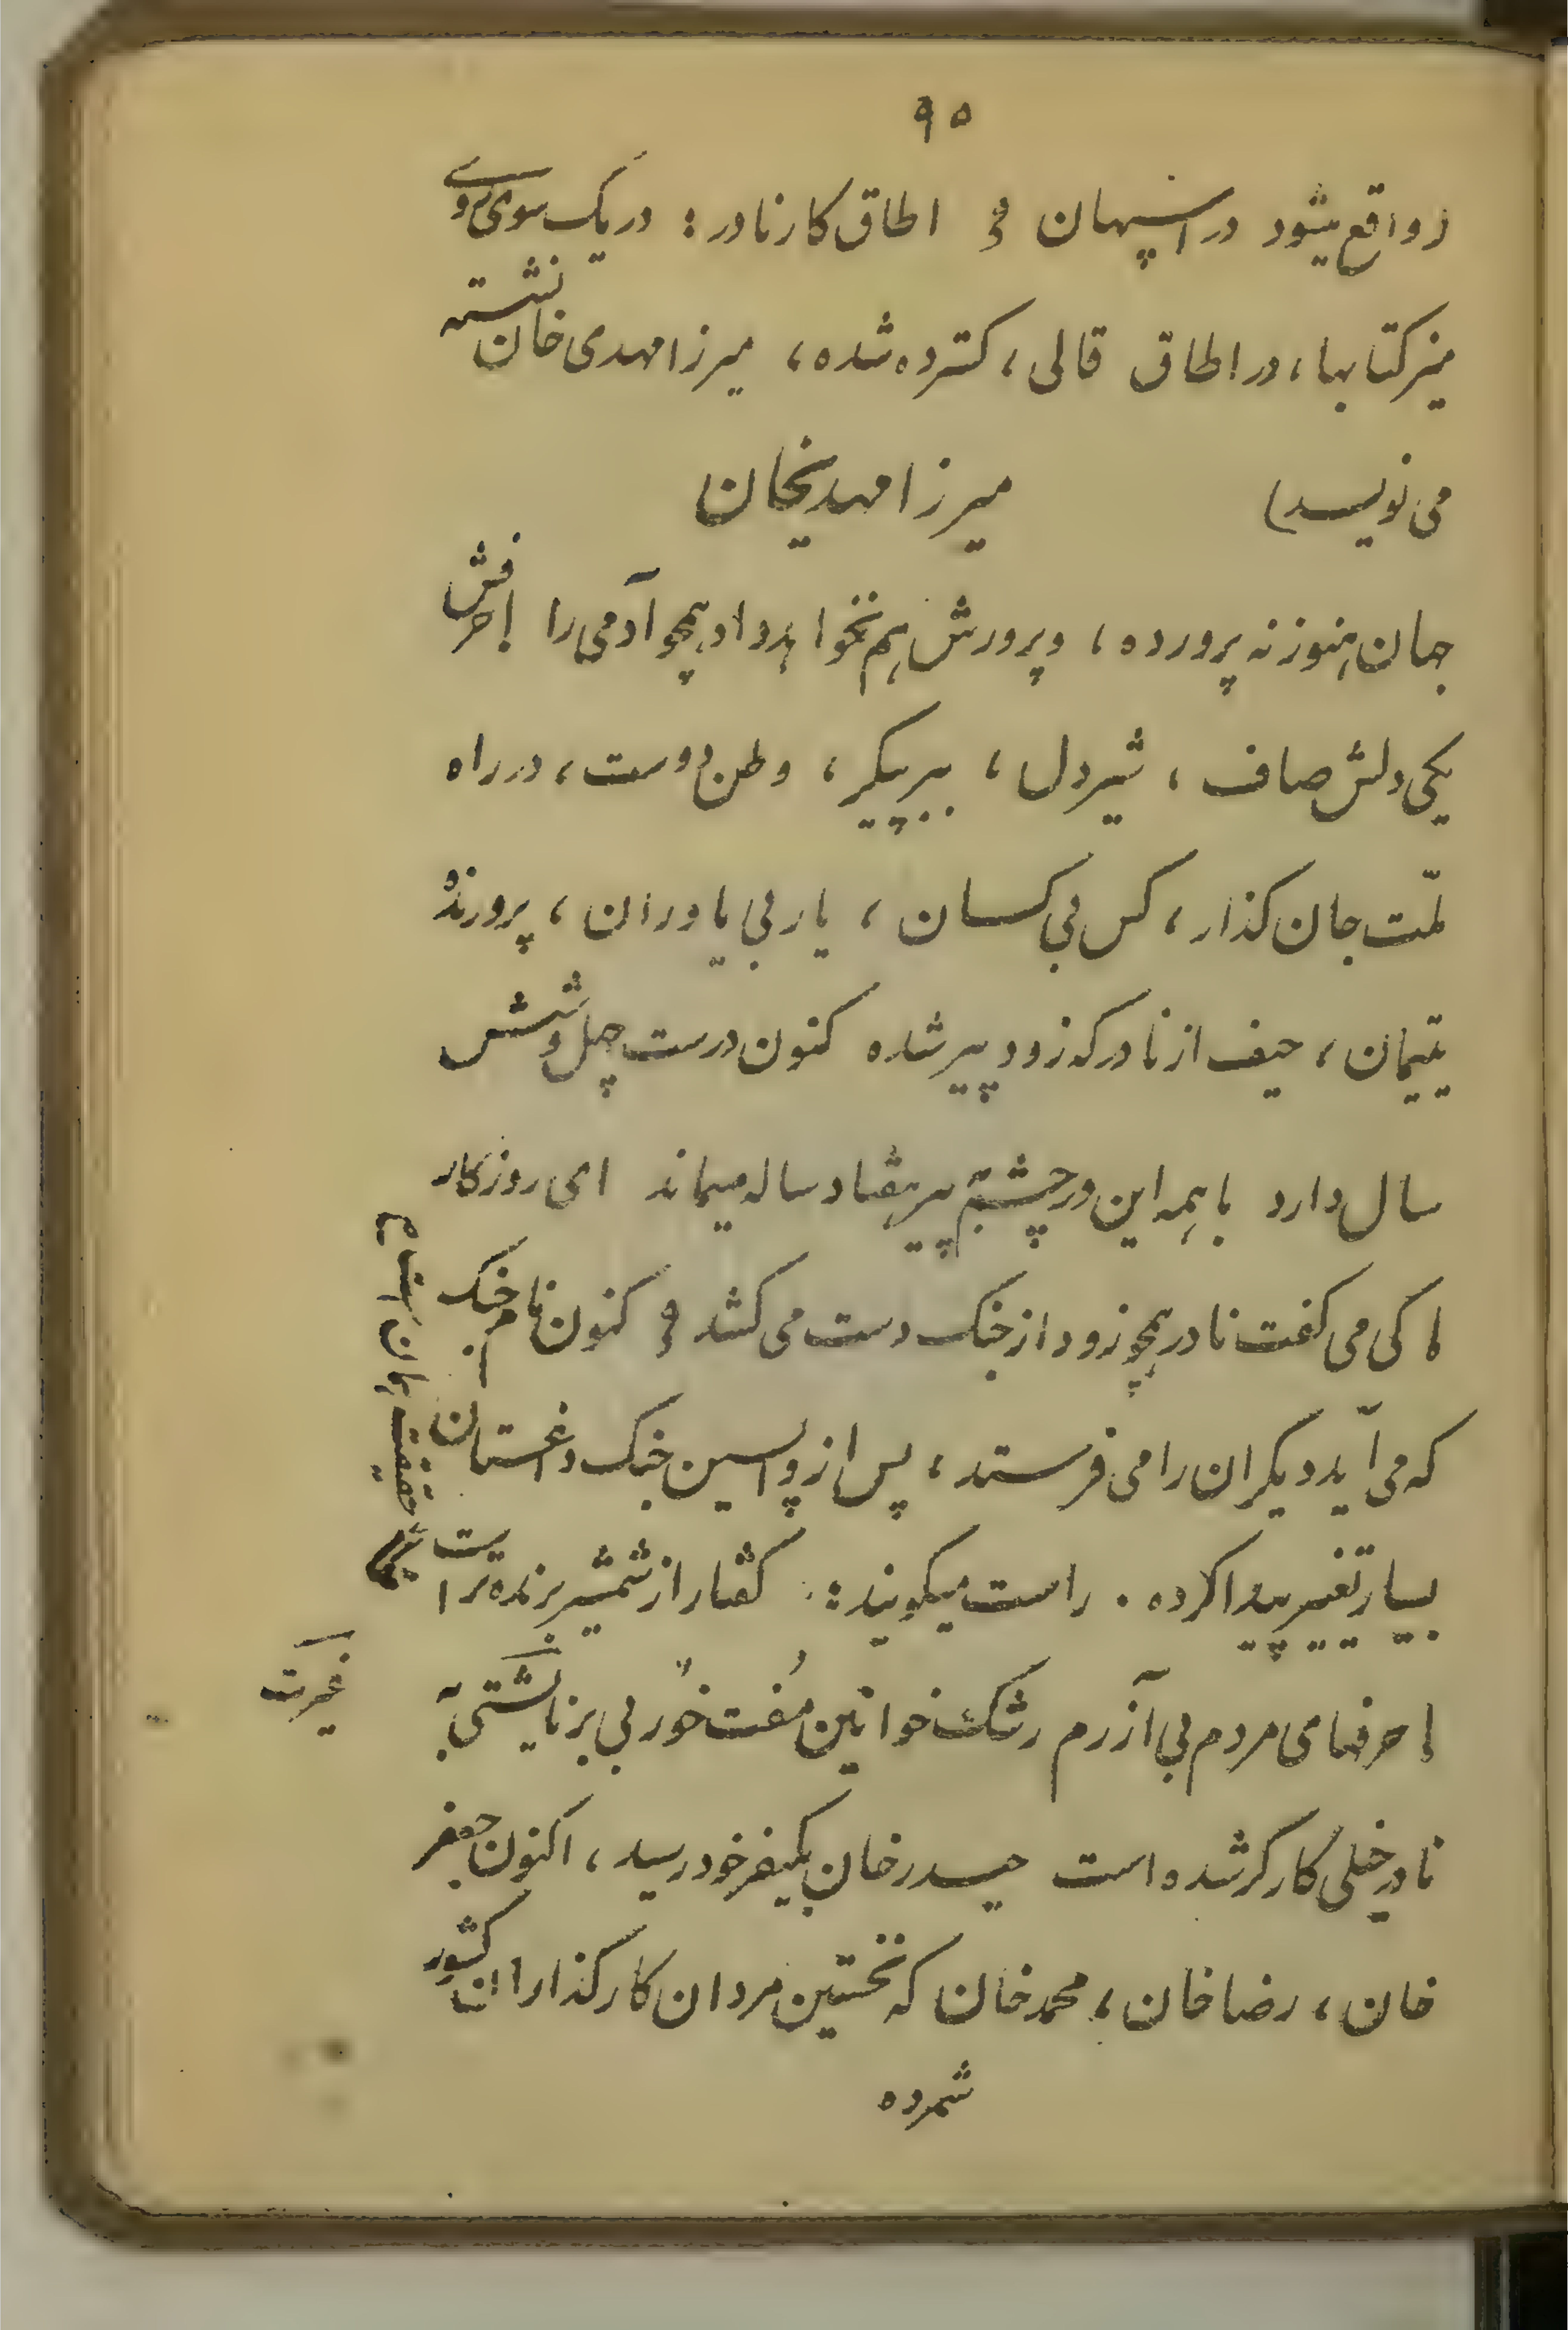 ۹۵
(واقع میشود در اسپهان و اطاق کار نادر: در یک سوی وی
میز کتابها، در اطاق قالی، کسترده شده، میرزا مهدی خان نشسته
می نویسد)
میرزا مهدیخان
جهان هنوز نه پرورده، و پرورش هم نخواهد داد همچو آدمی را با حرفش
یکی دلش صاف، شیردل، ببر پیکر، وطن دوست، در راه
ملّت جان کذار، کس بی کسان، یار بی یاوران، پرورندهٔ
یتیمان، حیف از نادر که زود پیر شده کنون درست چهل و شش
سال دارد با همه این در چشم پیر هفتاد ساله میماند ای روزکار
کی می کفت نادر همچو زود از جنک دست می کشد و کنون نام جنک
که می آید دیکران را می فرستد، پس از واپسین جنک داغستان
بسیار تغییر پیدا کرده . راست میکویند: کفتار از شمشیر برنده تر است
حرفهای مردم بی آزرم رشک خوانین مُفت خور بی بر
نادر خیلی کارکر شده است حیدر خان بکیفر خود رسید، اکنون جعفر
خان، رضا خان، محمد خان که نخستین مردان کارکذاران کشور
شمرده
غیرت